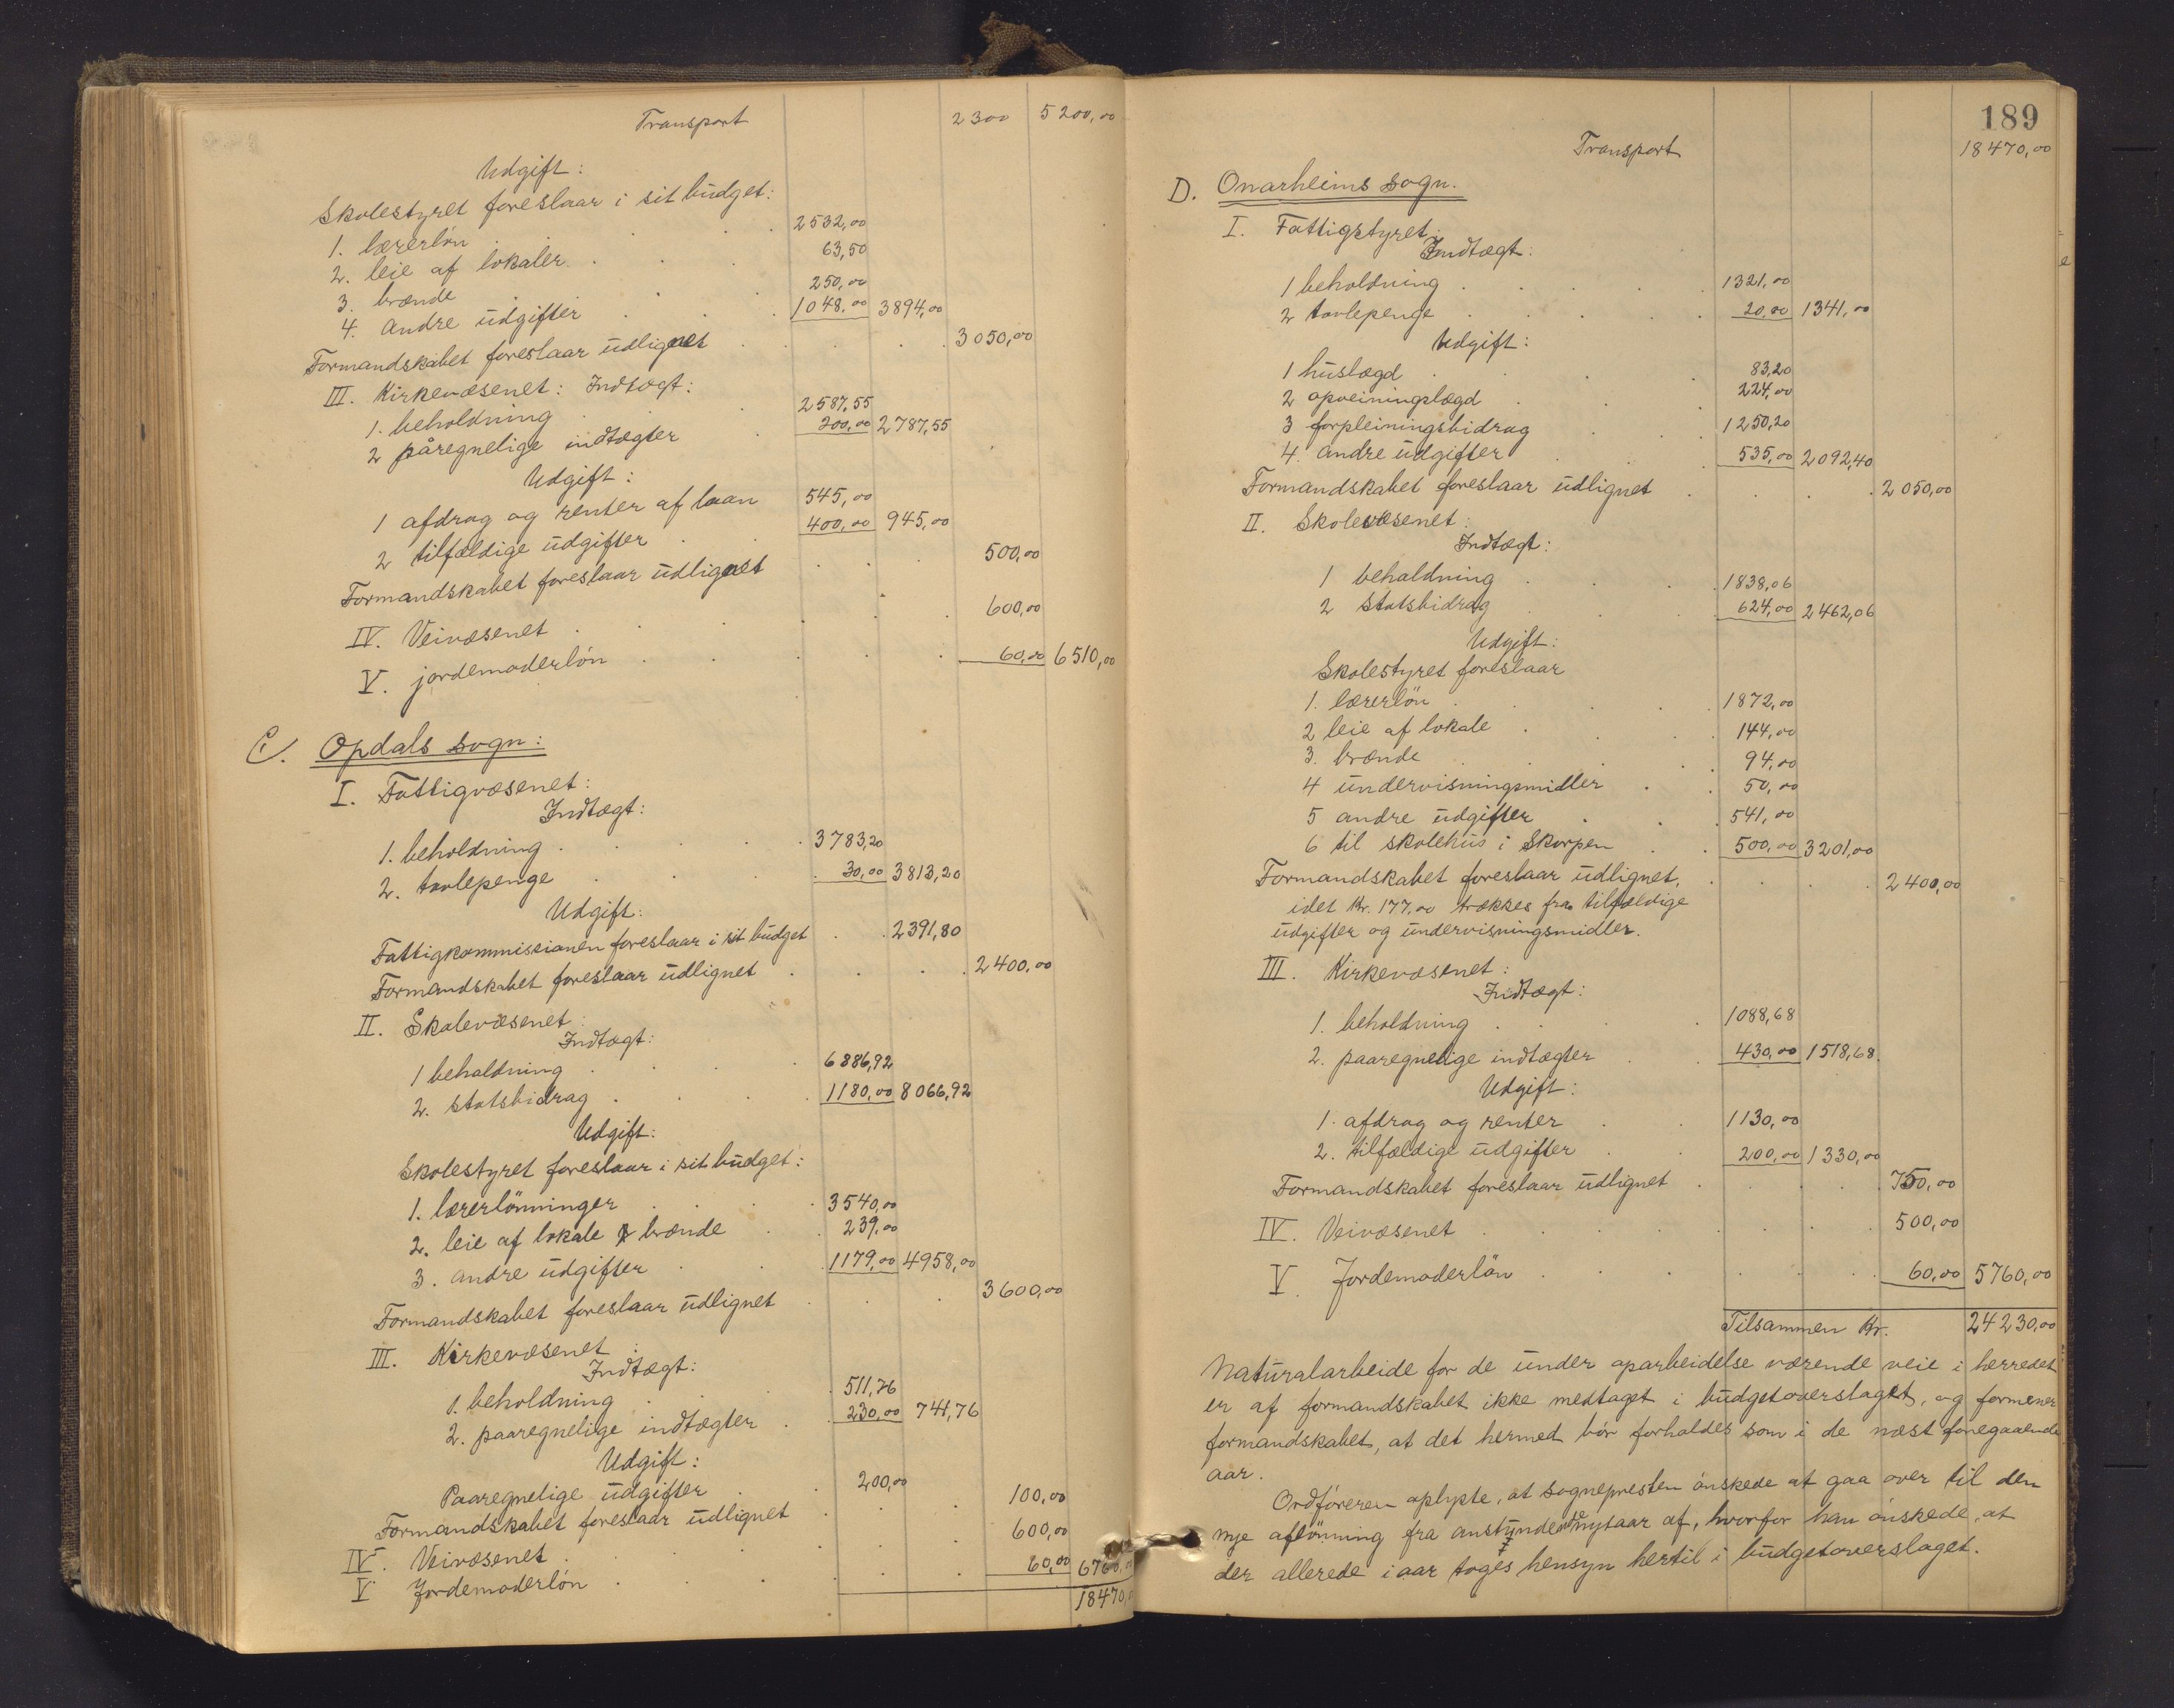 Transport 2300 5200,00
Udgift:
Skolestyret foreslaar i sit budget:
1. lærerløn . . . 2532,00
2. leie af lokaler . . . 63,50
3. brænde . . . 250,00
4. andre udgifter . . . 1048,00 3894,00
Formandskabet foreslaar udlignet . . . 3050,00
III. Kirkevæsenet: Indtægt:
1. beholdning . . . 2587,55
2 påregnelige indtægter . 200,00 2787,55
Udgift:
1 afdrag og renter af laan 545,00
2 tilfældige udgifter . 400,00 945,00
Formandskabet foreslaar udlignet . . . 500,00
IV. Veivæsenet . . . 600,00
V. jordemoderløn . . . 60,00 6510,00
C. Opdals sogn:
I. Fattigvæsenet:
Indtægt:
1. beholdning . . . 3783,20
2. tavlepenge . . . 30,00 3813,20
Udgift:
Fattigkommissionen foreslaar i sit budget . . 2391,80
Formandskabet foreslaar udlignet . . . 2400,00
II. Skolevæsenet
Indtægt:
1 beholdning . . . 6886,92
2. statsbidrag . . . 1180,00 8066,92
Udgift:
Skolestyret foreslaar i sit budget:
1. lærerlønninger . . . 3540,00
2. leie af lokale & brænde . . 239,00
3. andre udgifter . . . 1179,00 4958,00
Formandskabet foreslaar udlignet . . . 3600,00
III. Kirkevæsenet :
Indtægt:
1. beholdning . . . 511,76
2. paaregnelige indtægter . 230,00 741,76
Udgift:
Paaregnelige udgifter . . 200,00
Formandskabet foreslaar udlignet . . . 100,00
IV. Veivæsenet . . . 600,00
V Jordemoderløn . . . 60,00 6760,00
18470,00
189
Transport 18470,00
D. Onarheims sogn.
I. Fattigstyret.
Indtægt:
1 beholdning . . . 1321,00
2 tavlepenge . . . 20,00 1341,00
Udgift:
1 huslægd . . . 83,20
2 opveiningslægd . . . 224,00
3 forpleiningsbidrag . . . 1250,20
4. andre udgifter . . . 535,00 2092,40
Formandskabet foreslaar udlignet . . . 2050,00
II. Skolevæsenet:
Indtægt:
1 beholdning . . . 1838,06
2 Statsbidrag . . . 624,00 2462,06
Udgift:
Skolestyret foreslaar
1. lærerløn . . . 1872,00
2 leie af lokale . . . 144,00
3. brænde . . . 94,00
4 undervisningsmidler . . 50,00
5 andre udgifter . . . 541,00
6 til skolehus i Skorpen . . 500,00 3201,00
Formandskabet foreslaar udlignet, . . . 2400,00
idet Kr. 177,00 trækkes fra tilfældige
udgifter og undervisningsmidler.
III. Kirkevæsenet:
Indtægt:
1. beholdning . . . 1088,68
2. paaregnelige indtægter . . 430,00 1518,68.
Udgift:
1. afdrag og renter . . 1130,00
2. tilfældige udgifter . . 200,00 1330,00
Formandskabet foreslaar udlignet . . . 750,00
IV. Veivæsenet . . . 500,00
V Jordemoderløn . . . 60,00 5760,00
Tilsammen Kr. 24230,00
Naturalarbeide for de under oparbeidelse værende veie i herredet
er af formandskabet ikke medtaget i budgetoverslaget, og formener
formandskabet, at det hermed bør forholdes som i de næst foregaaende
aar.
Ordføreren oplyste, at sognepresten ønskede at gaa over til den
nye aflønning fra anstundende nytaar af, hvorfor han ønskede, at
der allerede i aar toges hensyn hertil i budgetoverslaget.